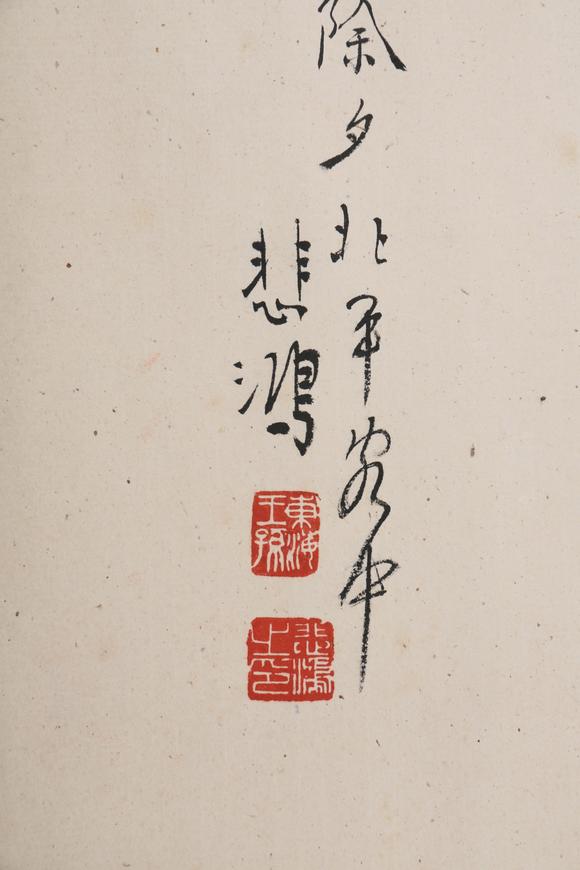 除夕北平客中
悲鴻
東海王孫
悲鴻之印